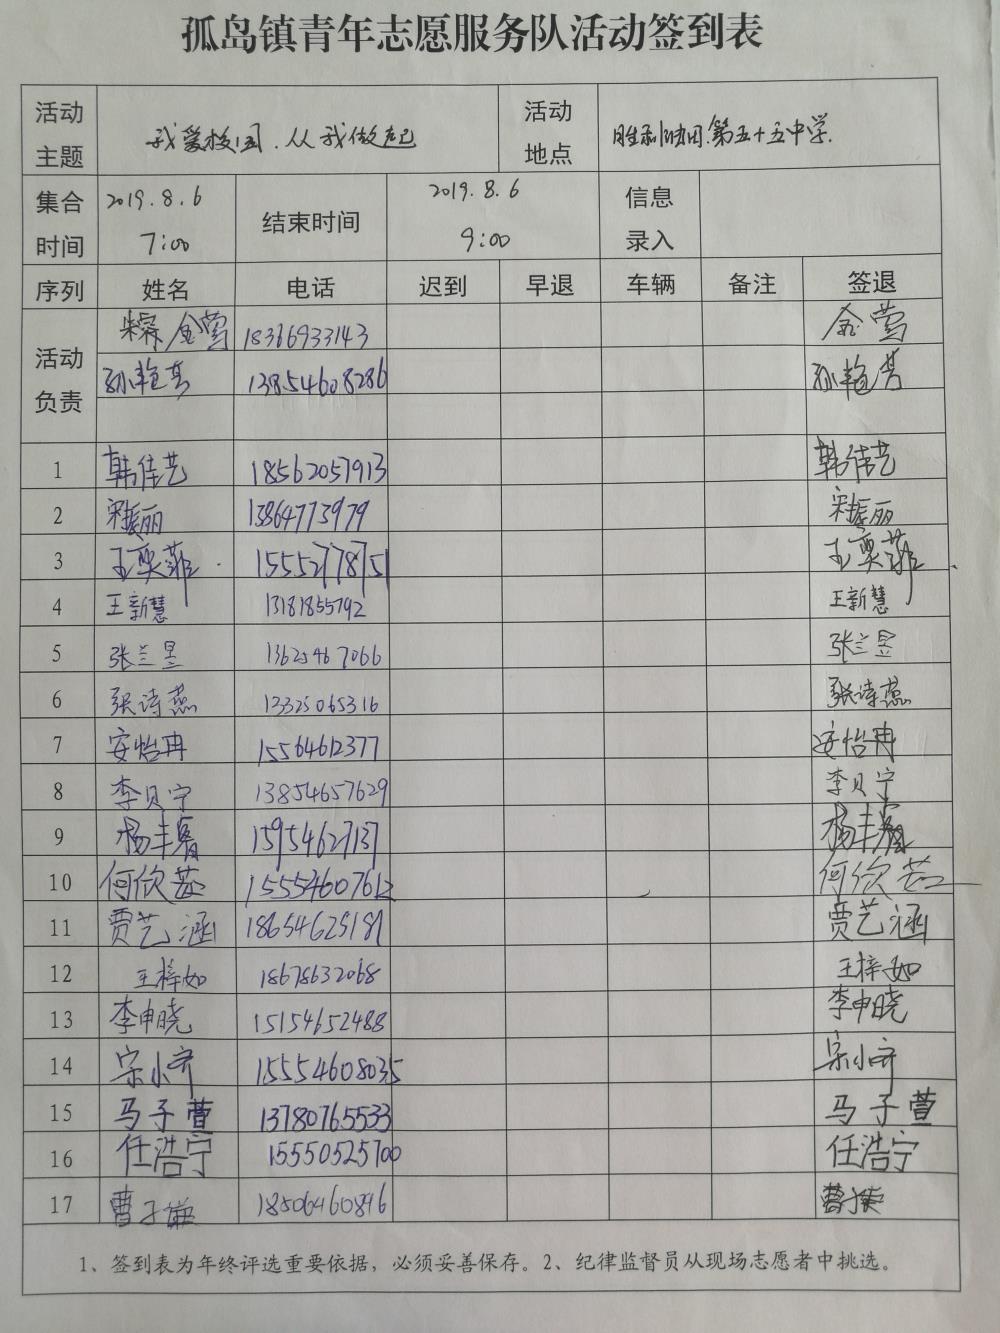 孤岛镇青年志愿服务队活动签到表
活动主题 我爱校园.从我做起 活动地点 胜利油田.第五十五中学.
集合时间 2019.8.6 7:00 结束时间 2019.8.6 9:00 信息录入
序列 姓名 电话 迟到 早退 车辆 备注 签退
活动负责 金莺 18366933143 金莺
孙艳芳 13854608286 孙艳芳
1 韩佳艺 18562057913 韩佳艺
2 宋媛丽 13864773979 宋媛丽
3 王奕菲 15552778751 王奕菲
4 王新慧 13181855792 王新慧
5 张兰昱 13625467066 张兰昱
6 张诗蕊 13325065316 张诗蕊
7 安怡冉 15564612377 安怡冉
8 李贝宁 13854657629 李贝宁
9 杨丰睿 15954627137 杨丰睿
10 何欣茹 15554607612 何欣茹
11 贾艺涵 18654625181 贾艺涵
12 王梓如 18678632068 王梓如
13 李申晓 15154652488 李申晓
14 宗小齐 15554608035 宗小齐
15 马子萱 13780765533 马子萱
16 任浩宁 15550525700 任浩宁
17 曹子 18506460846 曹子
1、签到表为年终评选重要依据，必须妥善保存。2、纪律监督员从现场志愿者中挑选。